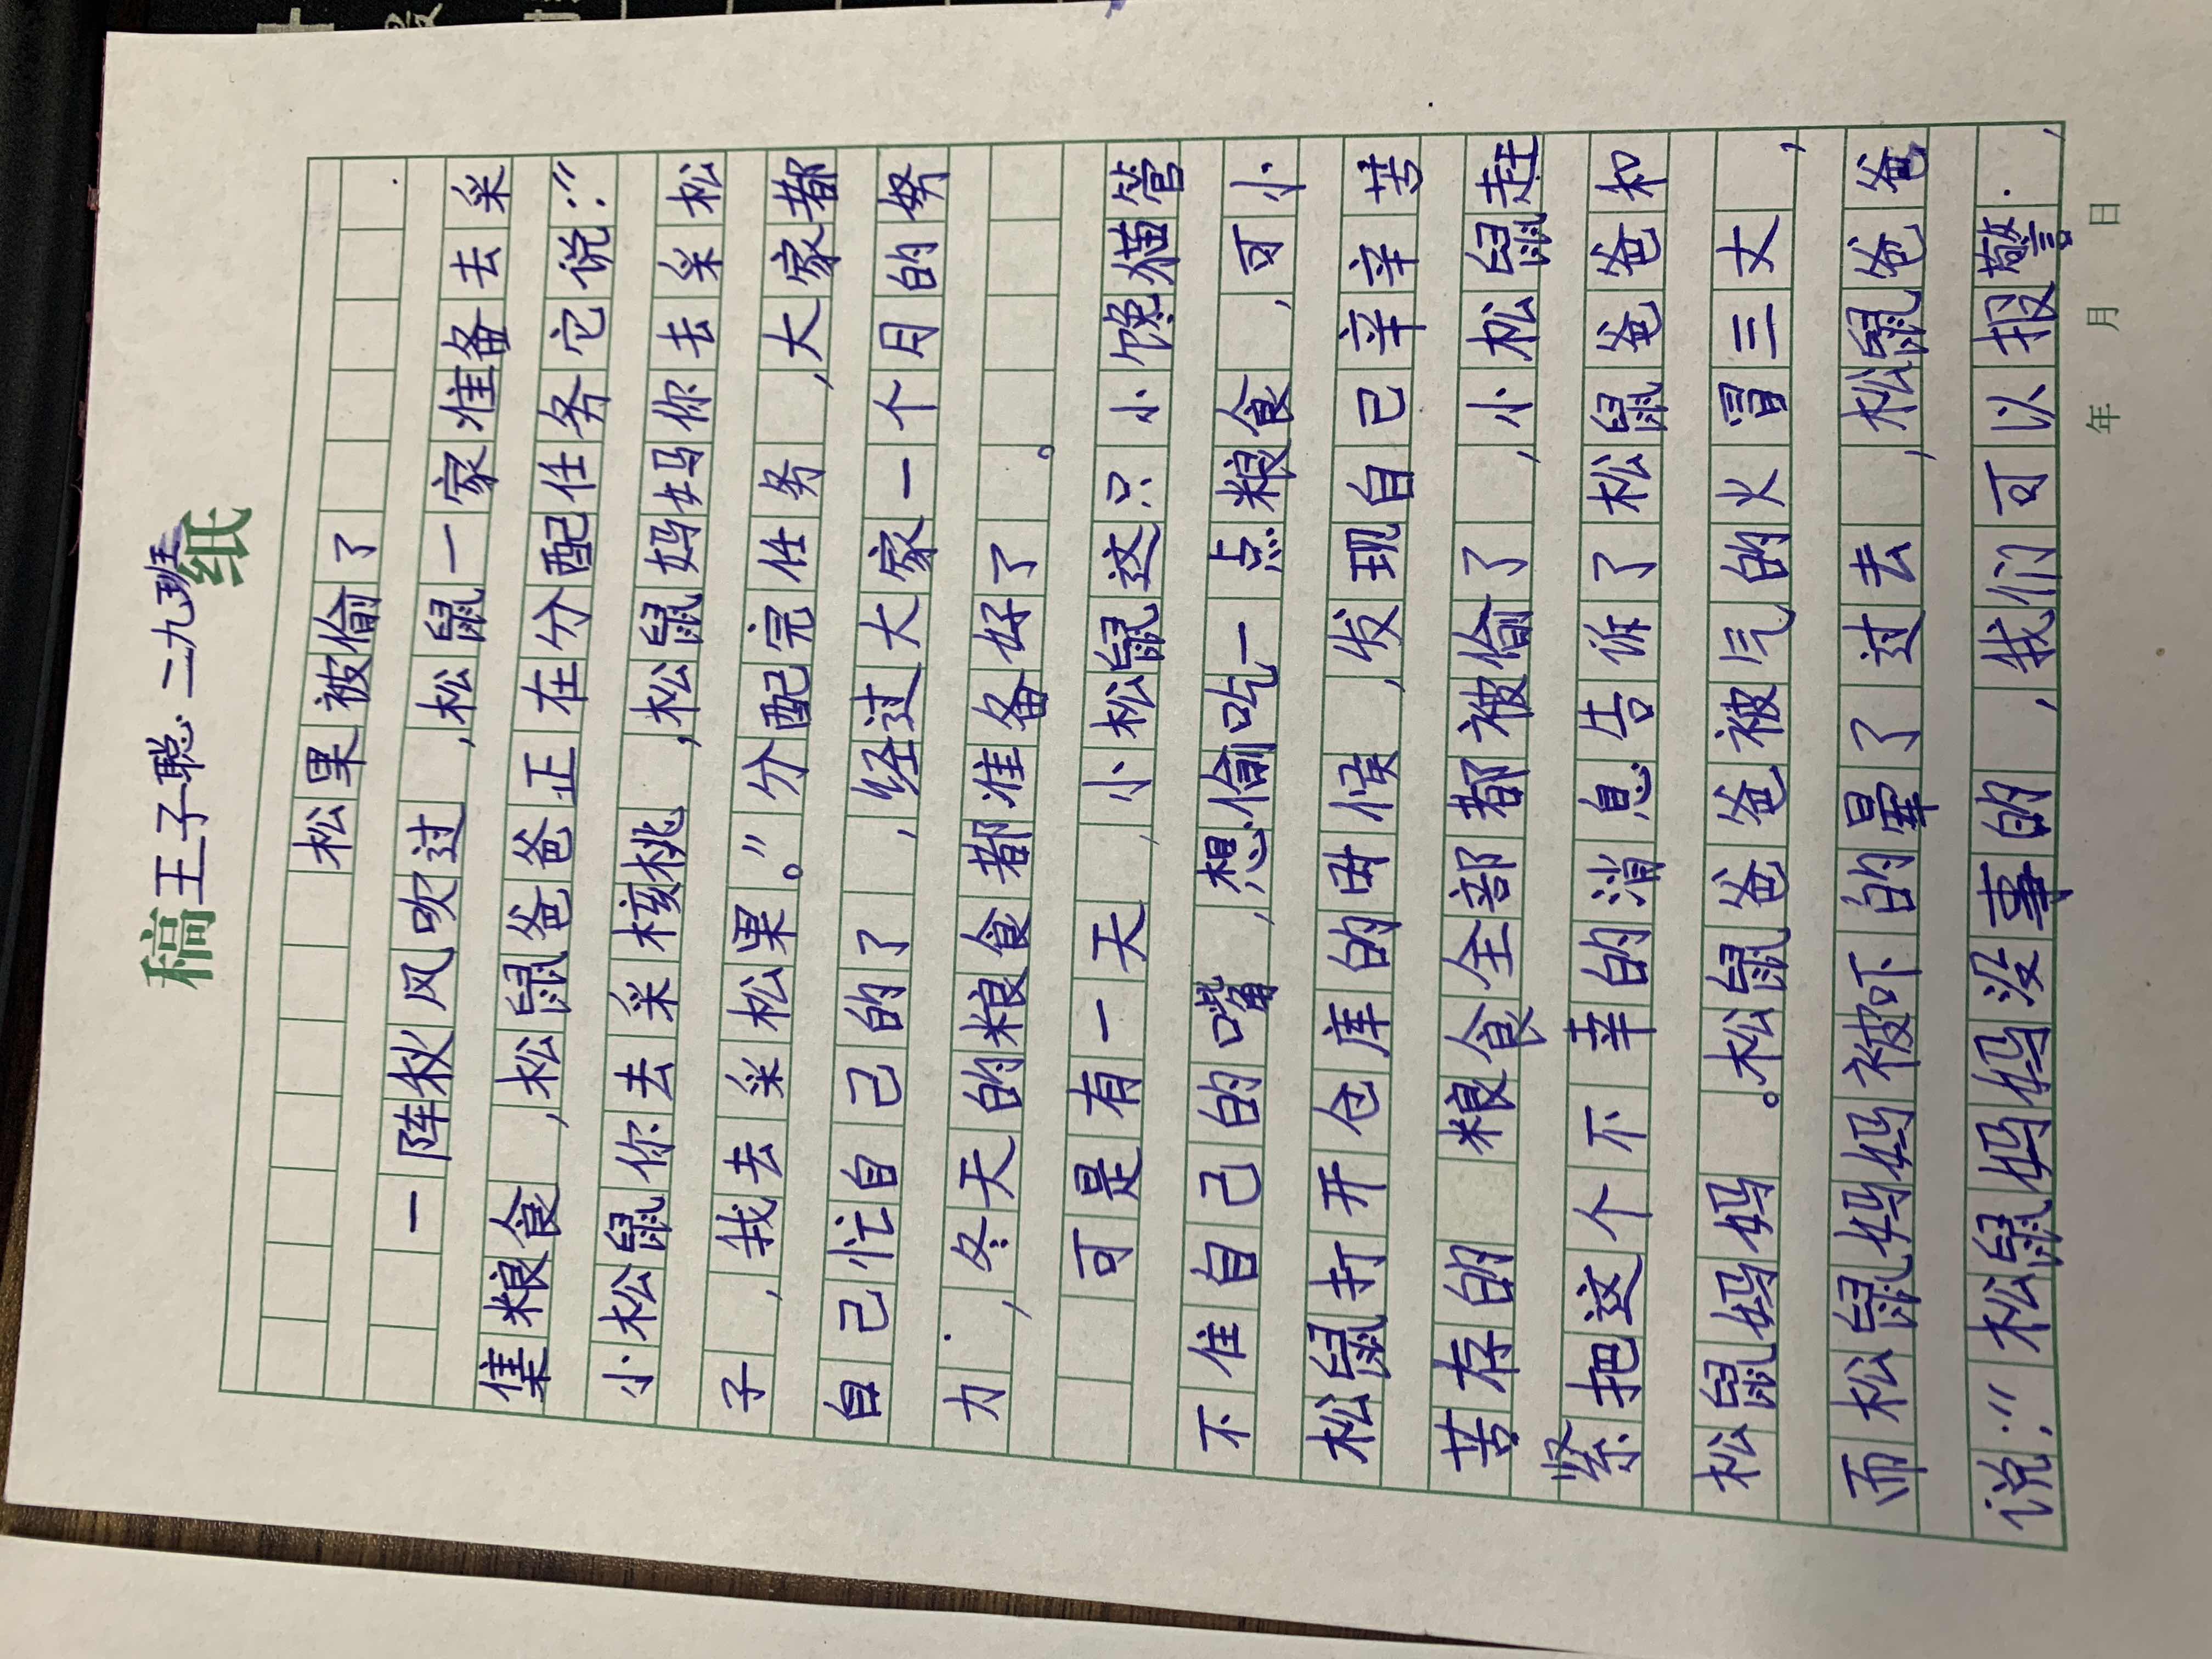 稿 纸
王子聪 二九班
松果被偷了
一阵秋风吹过,松鼠一家准备去采
集粮食,松鼠爸爸正在分配任务它说:"
小松鼠你去采核桃,松鼠妈妈你去采松
子,我去采松果。"分配完任务,大家都
自己忙自己的了,经过大家一个月的努
力,冬天的粮食都准备好了。
可是有一天,小松鼠这只小馋猫管
不住自己的嘴,想偷吃一点粮食,可小
松鼠打开仓库的时侯,发现自己辛辛苦
苦存的粮食全部都被偷了,小松鼠赶
紧把这个不幸的消息告诉了松鼠爸爸和
松鼠妈妈。松鼠爸爸被气的火冒三丈,
而松鼠妈妈被吓的晕了过去,松鼠爸爸
说:"松鼠妈妈没事的,我们可以报警,
年 月 日